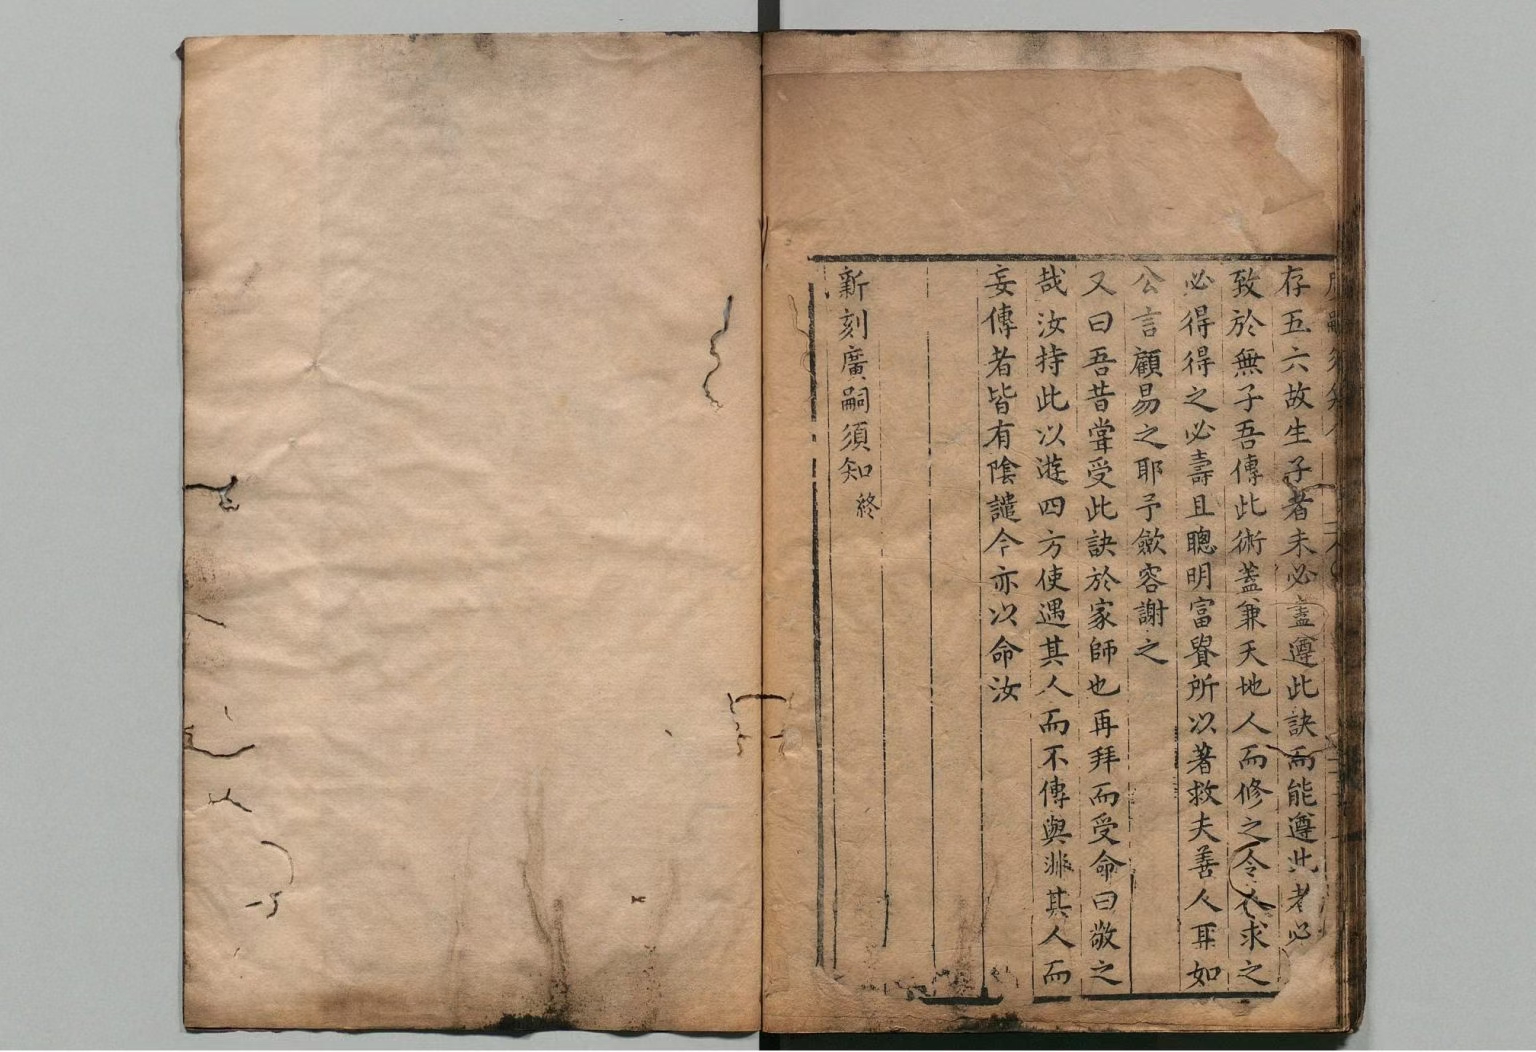 存五六故生子者未必盡遵此訣而能遵此者必
致於無子吾傳此術蓋兼天地人而修之令人求之
必得得之必壽且聰明富貴所以著救夫善人耳如
公言顧易之耶予歛容謝之
又曰吾昔嘗受此訣於家師也再拜而受命曰敬之
哉汝持此以遊四方使遇其人而不傳與非其人而
妄傳者皆有陰譴今亦以命汝
新刻廣嗣須知終